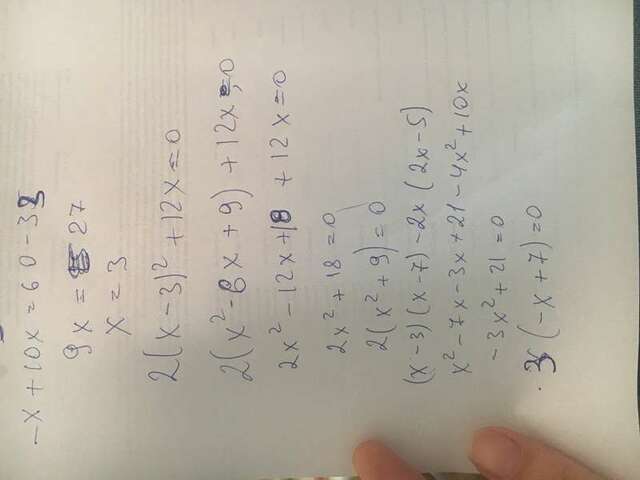 -x + 10x = 60 - 33
9x = 27
x = 3
2(x - 3)² + 12x = 0
2(x² - 6x + 9) + 12x = 0
2x² - 12x + 18 + 12x = 0
2x² + 18 = 0
2(x² + 9) = 0
(x - 3)(x - 7) - 2x(2x - 5)
x² - 7x - 3x + 21 - 4x² + 10x
- 3x² + 21 = 0
3(-x + 7) = 0